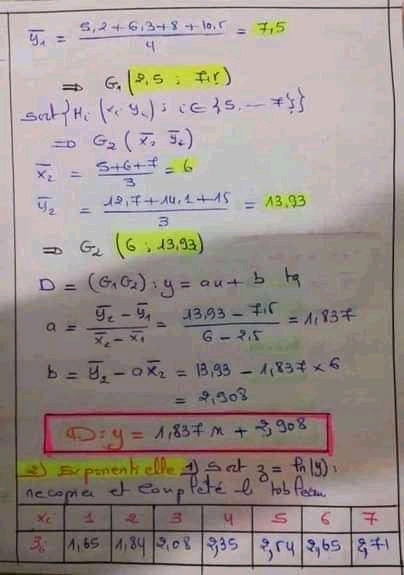 ȳ₁ = (5,2 + 6,3 + 8 + 10,5)/4 = 7,5
⇒ G₁ (2,5 ; 7,5)
Soit {Mᵢ (xᵢ yᵢ) ; i ∈ {5, ... 7}}
⇒ G₂ (x̄₂ ȳ₂)
x̄₂ = (5+6+7)/3 = 6
ȳ₂ = (12,7 + 14,1 + 15)/3 = 13,93
⇒ G₂ (6 ; 13,93)
D = (G₁G₂) : y = ax + b tq
a = (ȳ₂ - ȳ₁)/(x̄₂ - x̄₁) = (13,93 - 7,5)/(6 - 2,5) = 1,837
b = ȳ₂ - a x̄₂ = 13,93 - 1,837 × 6
= 2,908
D : y = 1,837 x + 2,908
2) Exponentielle 1) Soit z = ln(y) :
recopier et complèté l tableau
xᵢ 1 2 3 4 5 6 7
zᵢ 1,65 1,84 2,08 2,35 2,54 2,65 2,71